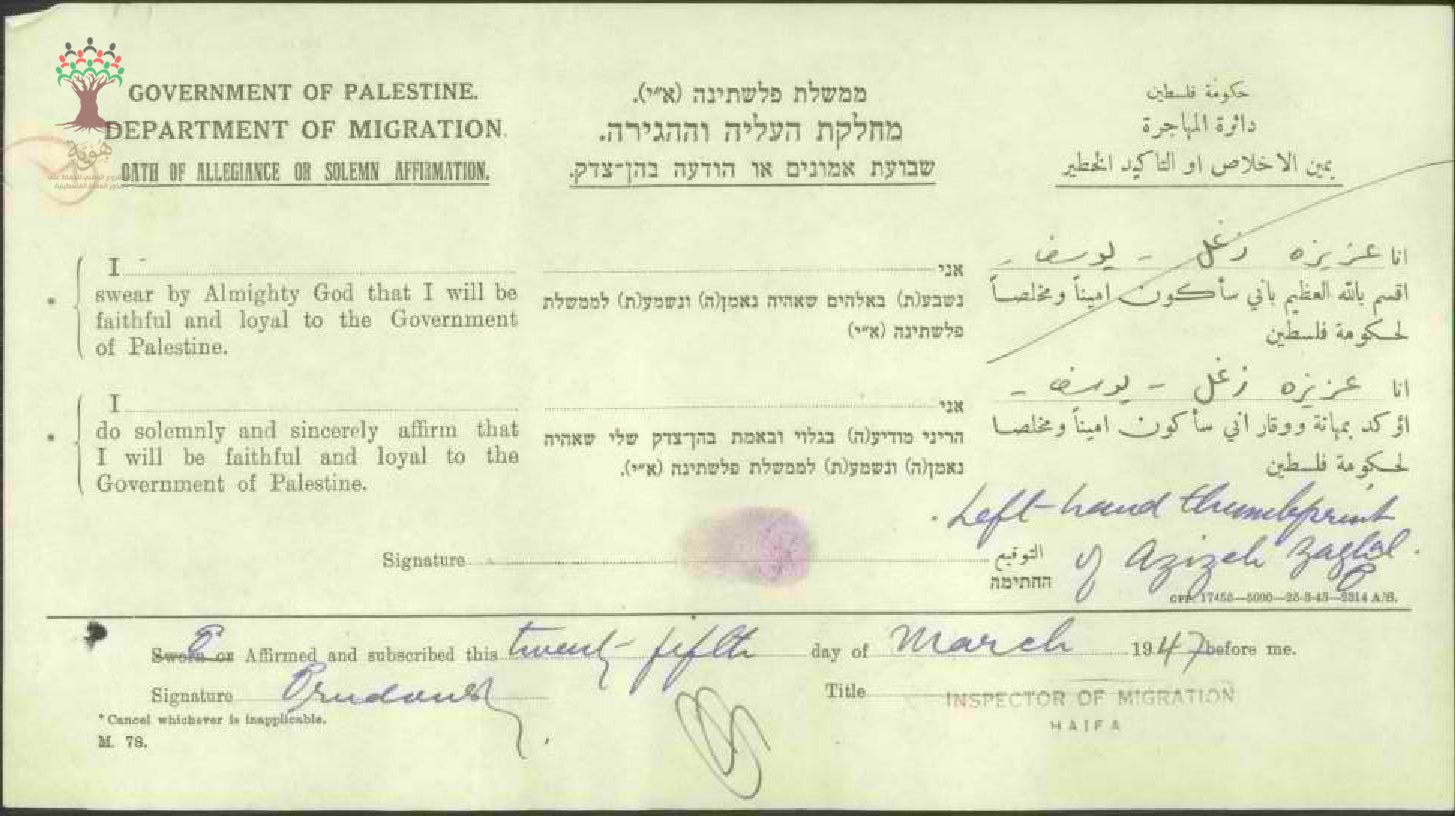 GOVERNMENT OF PALESTINE.
DEPARTMENT OF MIGRATION.
OATH OF ALLEGIANCE OR SOLEMN AFFIRMATION.
ממשלת פלשתינה (א״י).
מחלקת העליה וההגירה.
שבועת אמונים או הודעה בהן־צדק.
حكومة فلسطين
دائرة المهاجرة
يمين الاخلاص او التاكيد الخطير
هوية
I
swear by Almighty God that I will be
faithful and loyal to the Government
of Palestine.
אני
נשבע(ת) באלהים שאהיה נאמן(ה) ונשמע(ת) לממשלת
פלשתינה (א״י)
انا عزيزه زغلل - يوسف -
اقسم بالله العظيم باني سأكون اميناً ومخلصاً
لحكومة فلسطين
I
do solemnly and sincerely affirm that
I will be faithful and loyal to the
Government of Palestine.
אני
הריני מודיע(ה) בגלוי ובאמת בהן־צדק שלי שאהיה
נאמן(ה) ונשמע(ת) לממשלת פלשתינה (א״י).
انا عزيزه زغلل - يوسف -
اؤكد بمهانة ووقار اني سأكون اميناً ومخلصا
لحكومة فلسطين
Left-hand thumbprint
of Azizeh Zaghlal.
Signature
التوقيع
החתימה
GPP. 17456—5000—25-3-45—2314 A/S.
Sworn or Affirmed and subscribed this twenty-fifth day of March 1947 before me.
Signature
Title INSPECTOR OF MIGRATION
HAIFA
* Cancel whichever is inapplicable.
M. 78.